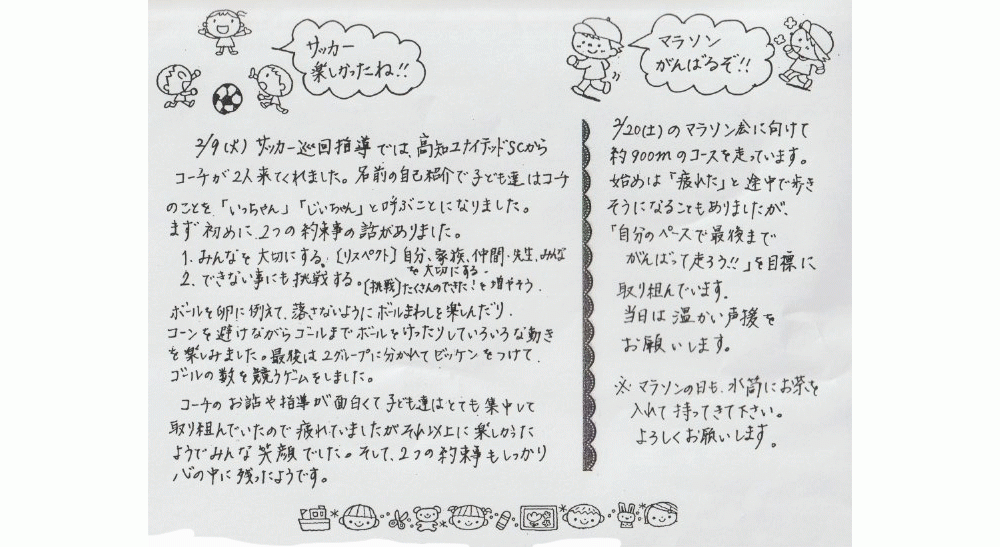 サッカー
楽しかったね!!
2/9(火) サッカー巡回指導では、高知ユナイテッドSCから
コーチが2人来てくれました。名前の自己紹介で子ども達はコーチ
のことを「いっちゃん」「じぃちゃん」と呼ぶことになりました。
まず初めに、2つの約束事の話がありました。
1. みんなを大切にする。〔リスペクト〕自分、家族、仲間・先生、みんな
を大切にする。
2. できない事にも挑戦する。〔挑戦〕たくさんのできた!を増やそう。
ボールを卵に例えて、落さないようにボールまわしを楽しんだり、
コーンを避けながらゴールまでボールをけったりしていろいろな動き
を楽しみました。最後は2グループに分かれてビッケンをつけて、
ゴールの数を競うゲームをしました。
コーチのお話や指導が面白くて子ども達はとても集中して
取り組んでいたので疲れていましたがそれ以上に楽しかった
ようでみんな笑顔でした。そして、2つの約束事もしっかり
心の中に残ったようです。
マラソン
がんばるぞ!!
2/20(土)のマラソン会に向けて
約900mのコースを走っています。
始めは「疲れた」と途中で歩き
そうになることもありましたが、
「自分のペースで最後まで
がんばって走ろう!!」を目標に
取り組んでいます。
当日は温かい声援を
お願いします。
※マラソンの日も、水筒にお茶を
入れて持ってきて下さい。
よろしくお願いします。